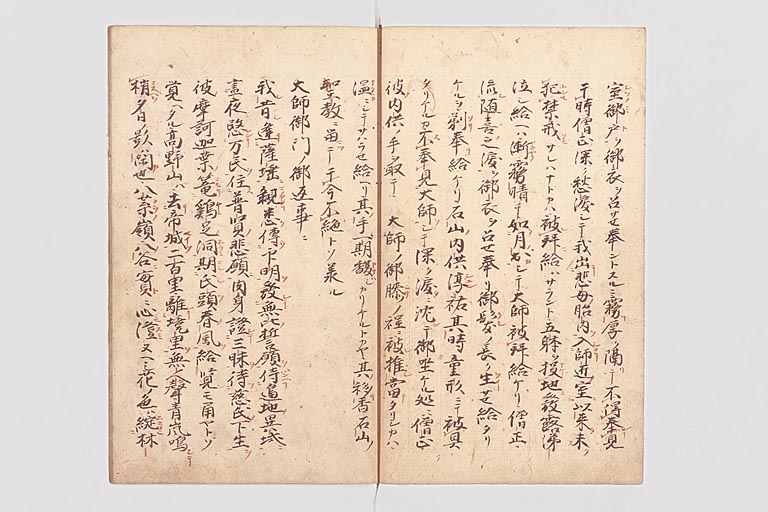 室御戸ヲ御衣ヲ召セ奉ントスルニ霧厚ク隔テ不得奉見
于時僧正深ク愁涙シテ我出悲母胎内入師近室以来未
犯禁戒サレハナトカハ被拝給ハサラント五躰ヲ投地發露涕
泣シ給ヘハ漸霧晴テ如月ノ出シテ大師被拝給ケリ僧正
流随喜之涙ヲ御衣ヲ召セ奉リ御髪ノ長ク生セ給タリ
ケルヲ剃奉給ケリ石山内供淳祐其時童形ニテ被具
タリケルカ不奉見大師シテ深ク涙ニ沈テ御坐ケル処ニ僧正
彼内供ノ手ヲ取テ 大師ノ御膝ノ程ニ被推當タリシカハ
温ニシテサハラセ給ヘリ其手一期馥カリケルトカヤ其移香石山ノ
聖教ニ留テ于今不絶トソ承ル
大師御門ノ御返事ニ
我昔逢薩埵親悉傳印明發無比誓願侍邊地異域
晝夜愍万民住普賢悲願肉身證三昧待慈氏下生
彼摩訶迦葉篭鷄足洞期氏頭春風給覧モ角ヤトソ
覚ヘタル高野山ハ去帝城二百里離境里無人聲青嵐鳴
梢夕日影閑也八葉嶺八谷實ニ心澄又ハ花ノ色ハ綻林